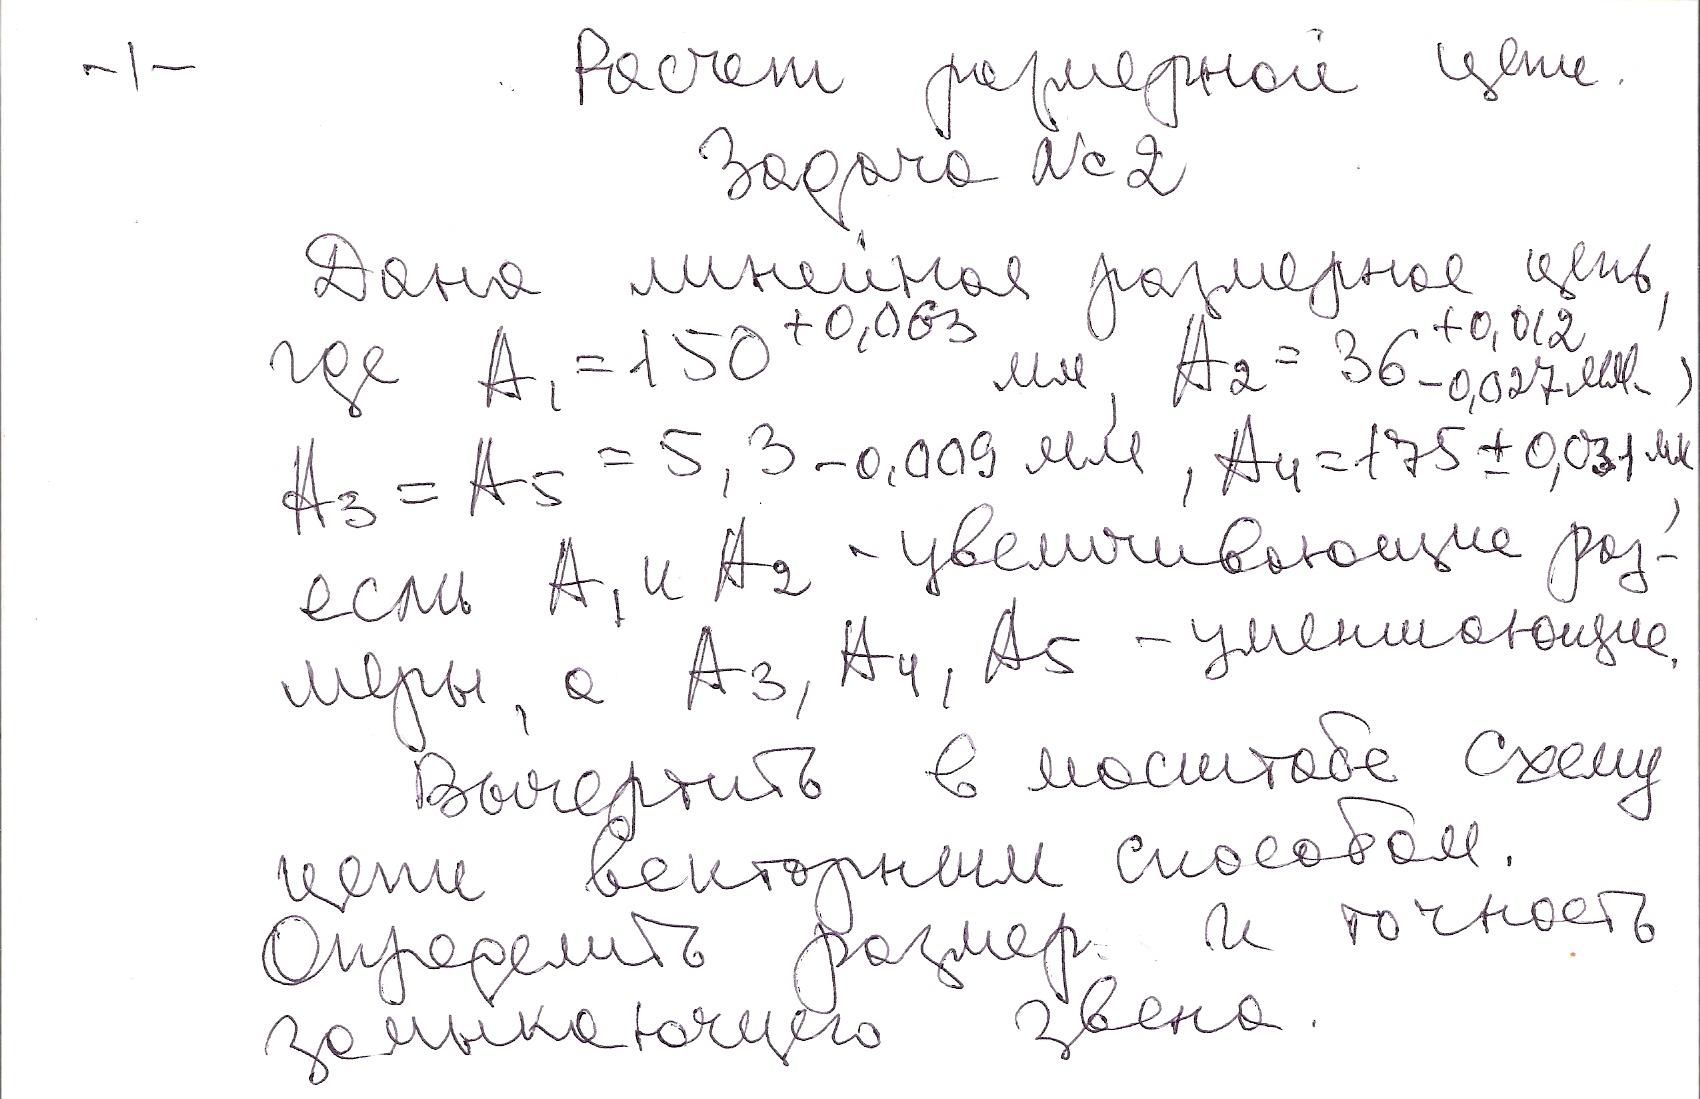 -1-
Расчет размерной цепи.
Задача № 2
Дана линейная размерная цепь,
где A₁ = 150⁺⁰,⁰⁶³ мм, A₂ = 36 +0,012 -0,027 мм,
A₃ = A₅ = 5,3 -0,009 мм, A₄ = 175 ± 0,031 мм,
если A₁ и A₂ - увеличивающие раз-
меры, а A₃, A₄, A₅ - уменшающие.
Вычертить в масштабе схему
цепи векторным способом.
Определить размер и точность
замыкающего звена.